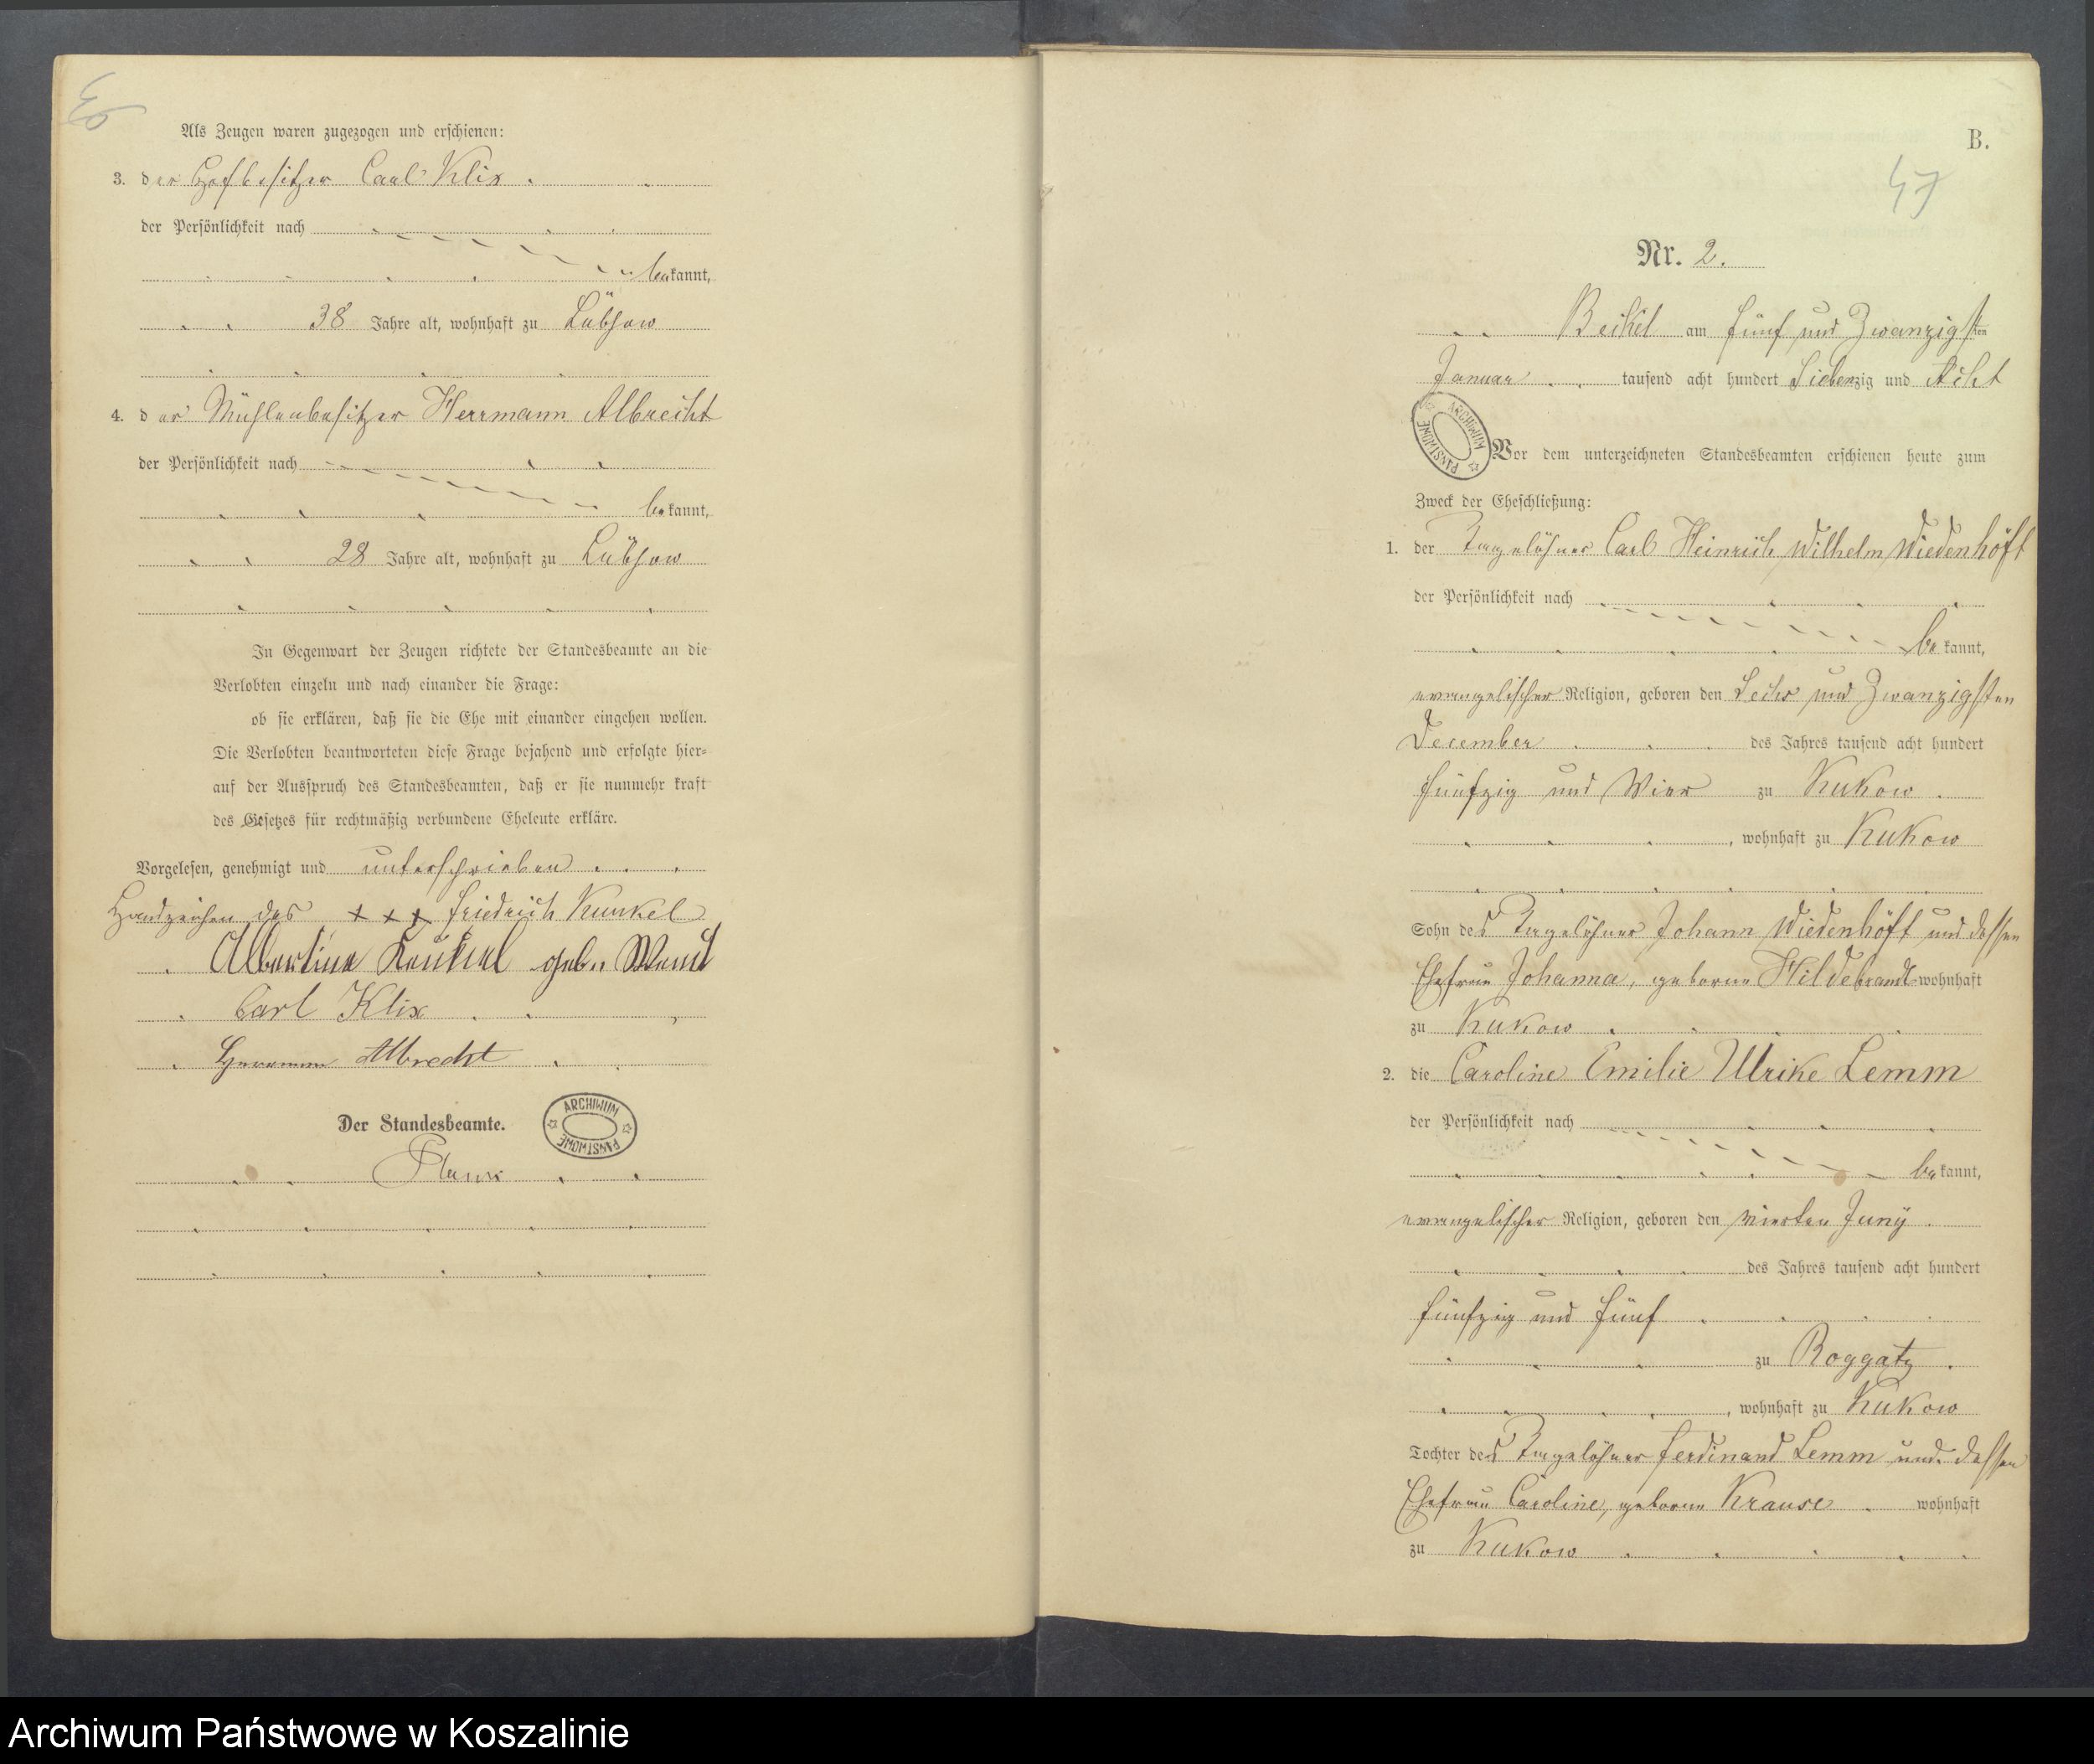 Als Zeugen waren zugezogen und erschienen:
3. der Hofbesitzer Carl Klix
der Persönlichkeit nach
bekannt,
38 Jahre alt, wohnhaft zu Lübsow
4. der Mühlenbesitzer Herrmann Albrecht
der Persönlichkeit nach
bekannt,
28 Jahre alt, wohnhaft zu Lübsow
In Gegenwart der Zeugen richtete der Standesbeamte an die
Verlobten einzeln und nach einander die Frage:
ob sie erklären, daß sie die Ehe mit einander eingehen wollen.
Die Verlobten beantworteten diese Frage bejahend und erfolgte hier-
auf der Ausspruch des Standesbeamten, daß er sie nunmehr kraft
des Gesetzes für rechtmäßig verbundene Eheleute erkläre.
Vorgelesen, genehmigt und unterschrieben
Handzeichen des + + + Friedrich Kunkel
Albertine Kunkel geb. Wendt
Carl Klix
Herrmann Albrecht
Der Standesbeamte.
ARCHIWUM PAŃSTWOWE
B.
47
Nr. 2.
Beikel am fünf und Zwanzigsten
Januar tausend acht hundert Siebenzig und Acht
ARCHIWUM PAŃSTWOWE
Vor dem unterzeichneten Standesbeamten erschienen heute zum
Zweck der Eheschließung:
1. der Tagelöhner Carl Heinrich Wilhelm Wiedenhöft
der Persönlichkeit nach
bekannt,
evangelischer Religion, geboren den Sechs und Zwanzigsten
December des Jahres tausend acht hundert
fünfzig und Vier zu Kukow
, wohnhaft zu Kukow
Sohn des Tagelöhner Johann Wiedenhöft und dessen
Ehefrau Johanna, geborne Hildebrandt wohnhaft
zu Kukow
2. die Caroline Emilie Ulrike Lemm
der Persönlichkeit nach
bekannt,
evangelischer Religion, geboren den vierten Juny
des Jahres tausend acht hundert
fünfzig und fünf
zu Roggatz
, wohnhaft zu Kukow
Tochter des Tagelöhner Ferdinand Lemm und dessen
Ehefrau Caroline, geborne Krause wohnhaft
zu Kukow
Archiwum Państwowe w Koszalinie